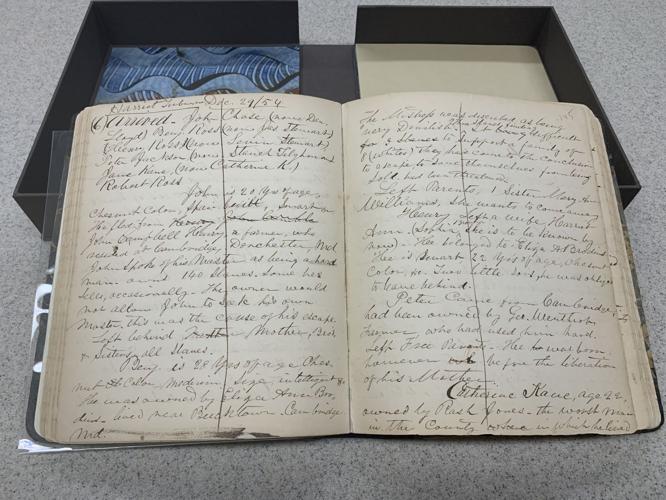 Harriet Tubman Dec. 29/54
Arrived - John Chase (now Dan.
Floyd) Benj. Ross (now Jas. Stewart)
Henry Ross (now Levin Stewart)
Peter Jackson (now
Jane Kane, (now Catherine K.)
Robert Ross
John is 20 Yrs of age,
Chesnut Color, Spare build, Smart
He fled from
John Campbell Henry, a farmer, who
resided at Cambridge, Dorchester, Md
John Spoke of his Master as being a hard
man. owns 140 Slaves. Some he
sells, occasionally. The owner would
not allow John to Seek his own
Master, this was the cause of his escape.
Left behind Mother, Bro's
& Sisters, all Slaves.
Benj. is 28 Yrs of age, Ches-
nut Color, Medium Size, intelligent &c
He was owned by Eliza Ann Bro-
dins - lived near Bucktown. Cambridge
Md.
The Mistress was described as being
very Devilish.
for 2 Slaves to Support a family of
8 (whites) they had come to the Conclusion
to escape to Save themselves from being
Sold, but ill treated.
Left Parents, 1 Sister, Mary Ann
Williamson, She wants to come away
Henry left a wife Harriet
Ann, (Sophia she is to be known by
now) - He belonged to Eliza A. Brodins
He is Smart 22 Yrs of age, Chesnut
Color, &c. Two little sons, he was obliged
to leave behind.
Peter Came from Cambridge
had been owned by Geo. Wenthrop
Farmer who had used him hard.
Left Free Parents - He was born
however before the liberation
of his Mother.
Catherine Kane, age 22,
owned by Rash Jones - the worst Man
in the County in which he lived